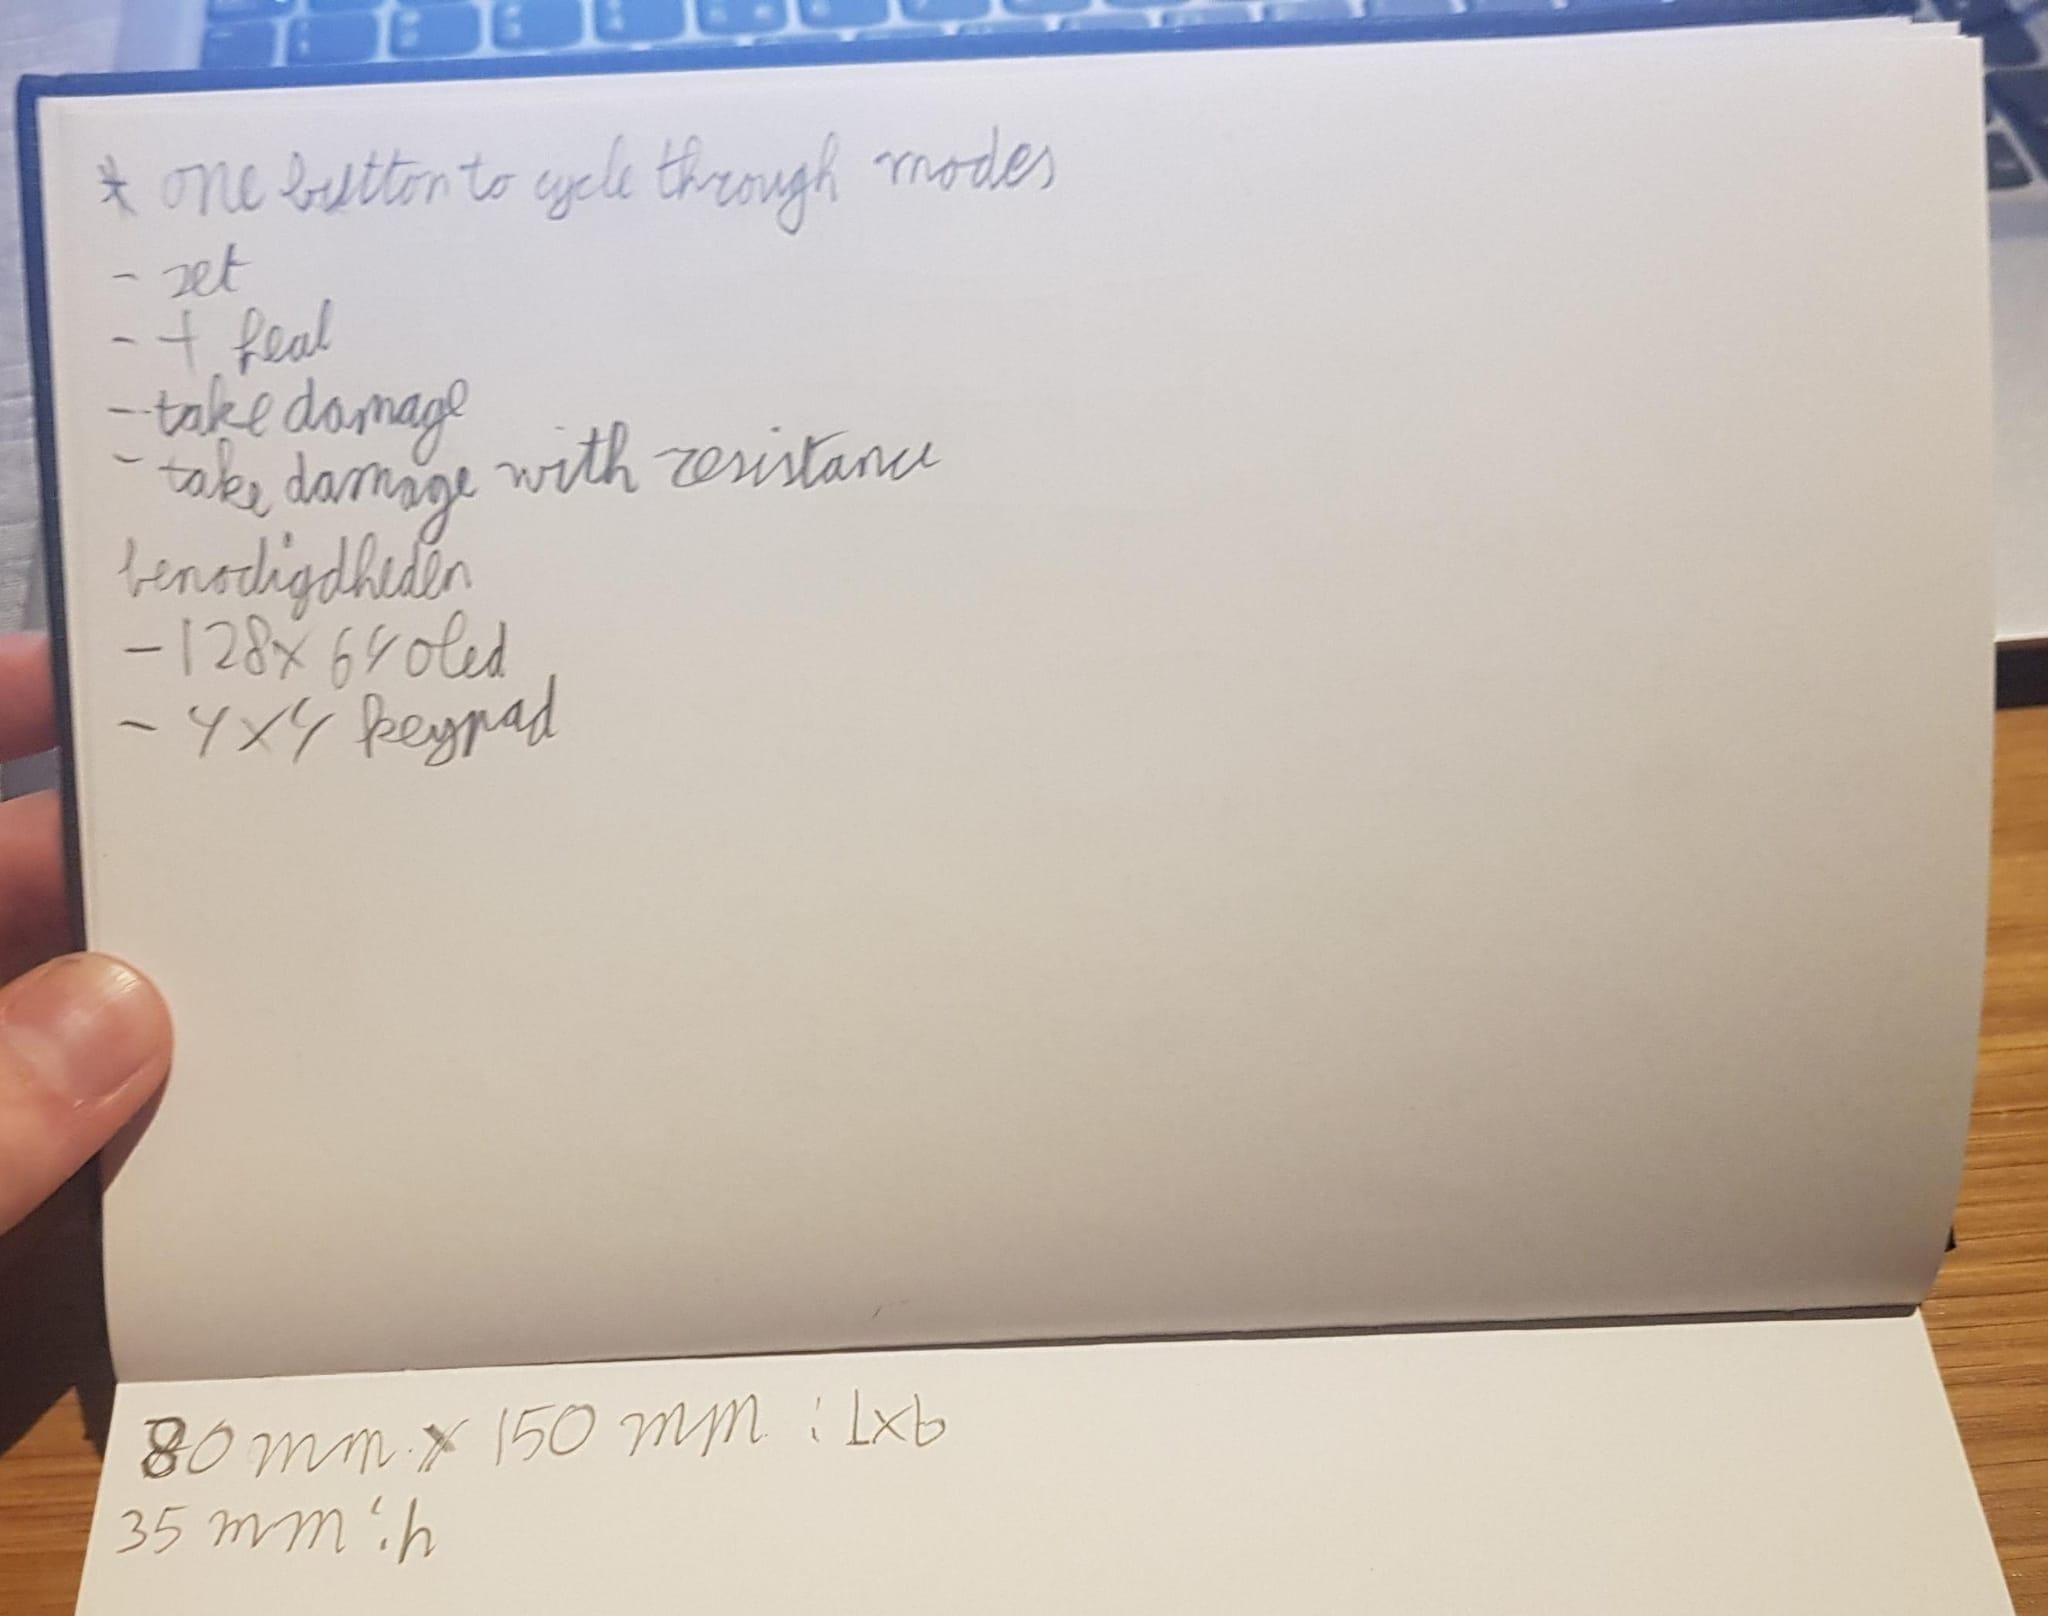 * one button to cycle through modes
- set
- + heal
- take damage
- take damage with resistance
benodigdheden
- 128x64 oled
- 4x4 keypad
80 mm x 150 mm : Lxb
35 mm : h